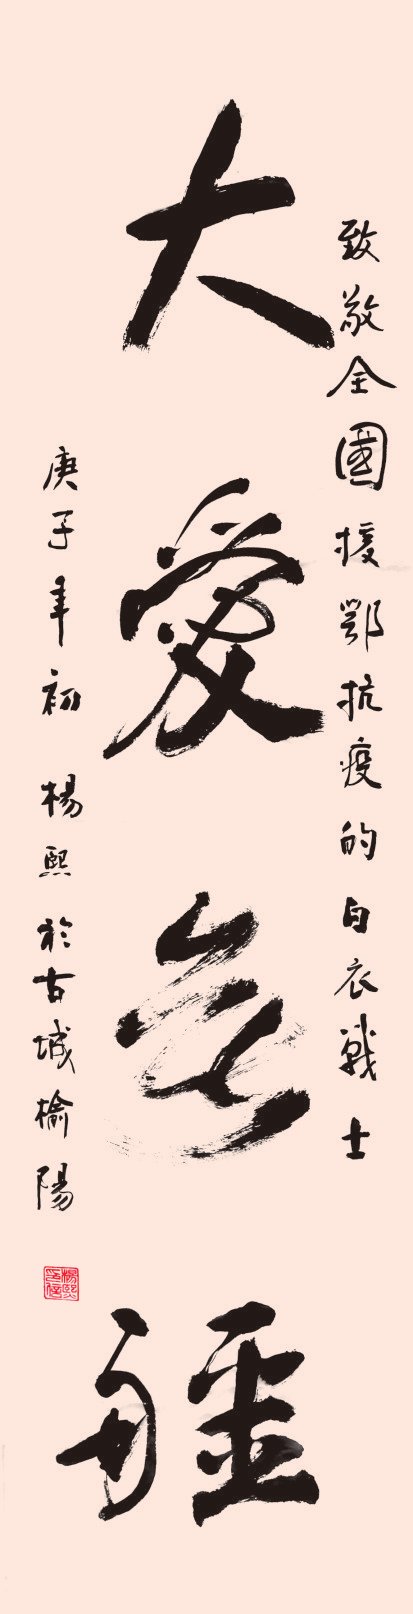 致敬全國援鄂抗疫的白衣戰士
大愛無疆
庚子年初 楊熙於古城榆陽
楊熙印信